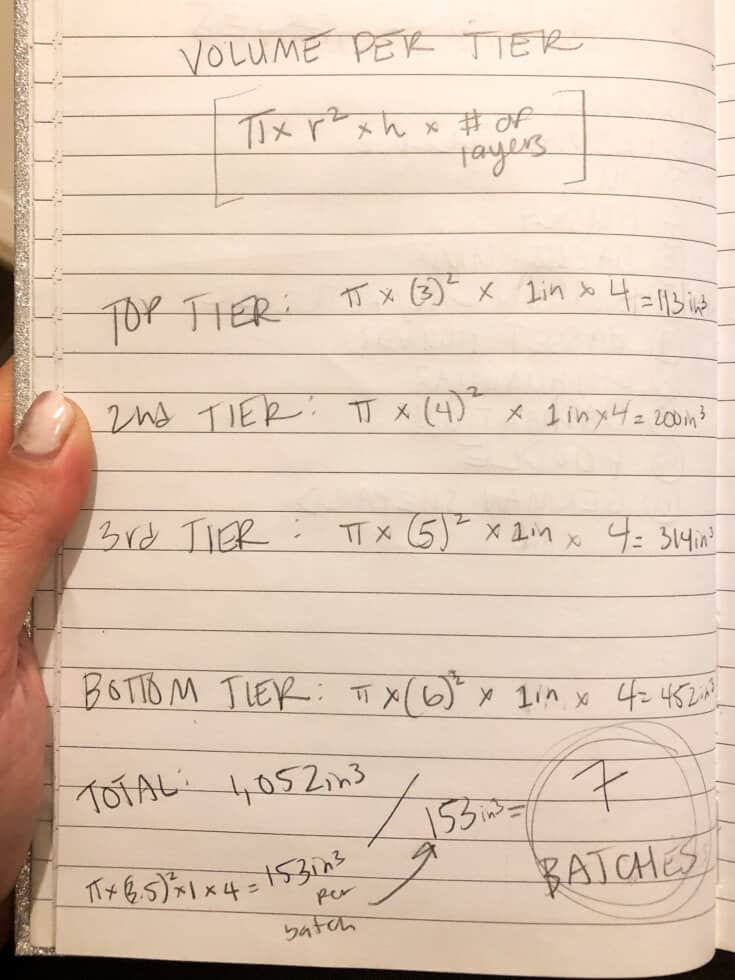 VOLUME PER TIER
[π x r² x h x # of
layers]
TOP TIER: π x (3)² x 1in x 4 = 113 in³
2nd TIER: π x (4)² x 1in x 4 = 200in³
3rd TIER : π x (5)² x 1in x 4 = 314in³
BOTTOM TIER: π x (6)² x 1in x 4 = 452in³
TOTAL: 1,052in3 / 153in³ = 7
BATCHES
π x (3.5)² x 1 x 4 = 153in³
per
batch